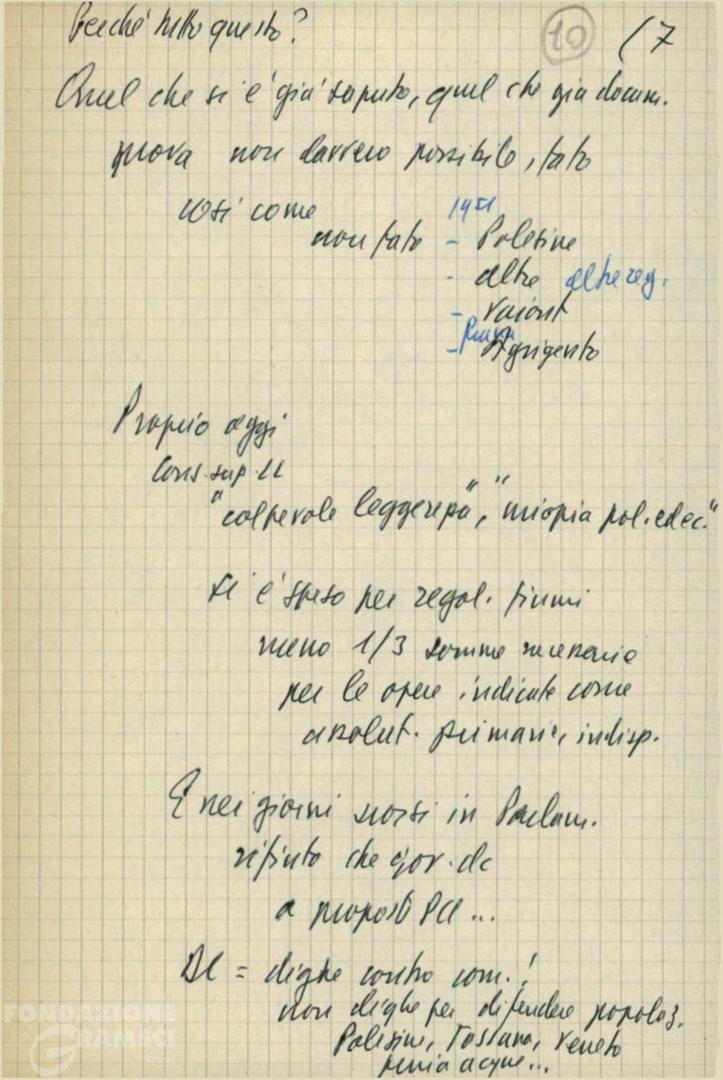 Perché tutto questo?
10
(7
Quel che si è già saputo, quel che già docum.
prova non davvero possibile, fato
così come
1951
non fato - Polesine
- altre altre reg.
- Vaiont
- Agrigento
Proprio oggi
Cons. sup. LL
"colpevole leggerezza", "miopia pol. ed ec."
si è speso per regol. fiumi
meno 1/3 somme necessarie
per le opere indicate come
assolut. primarie, indisp.
E nei giorni scorsi in Parlam.
rifiuto che gov. dc
a proposti PCI ...
DC = dighe contro com.!
non dighe per difendere popolaz.
Polesine, Toscana, Veneto
acque...
FONDAZIONE
GRAMSCI